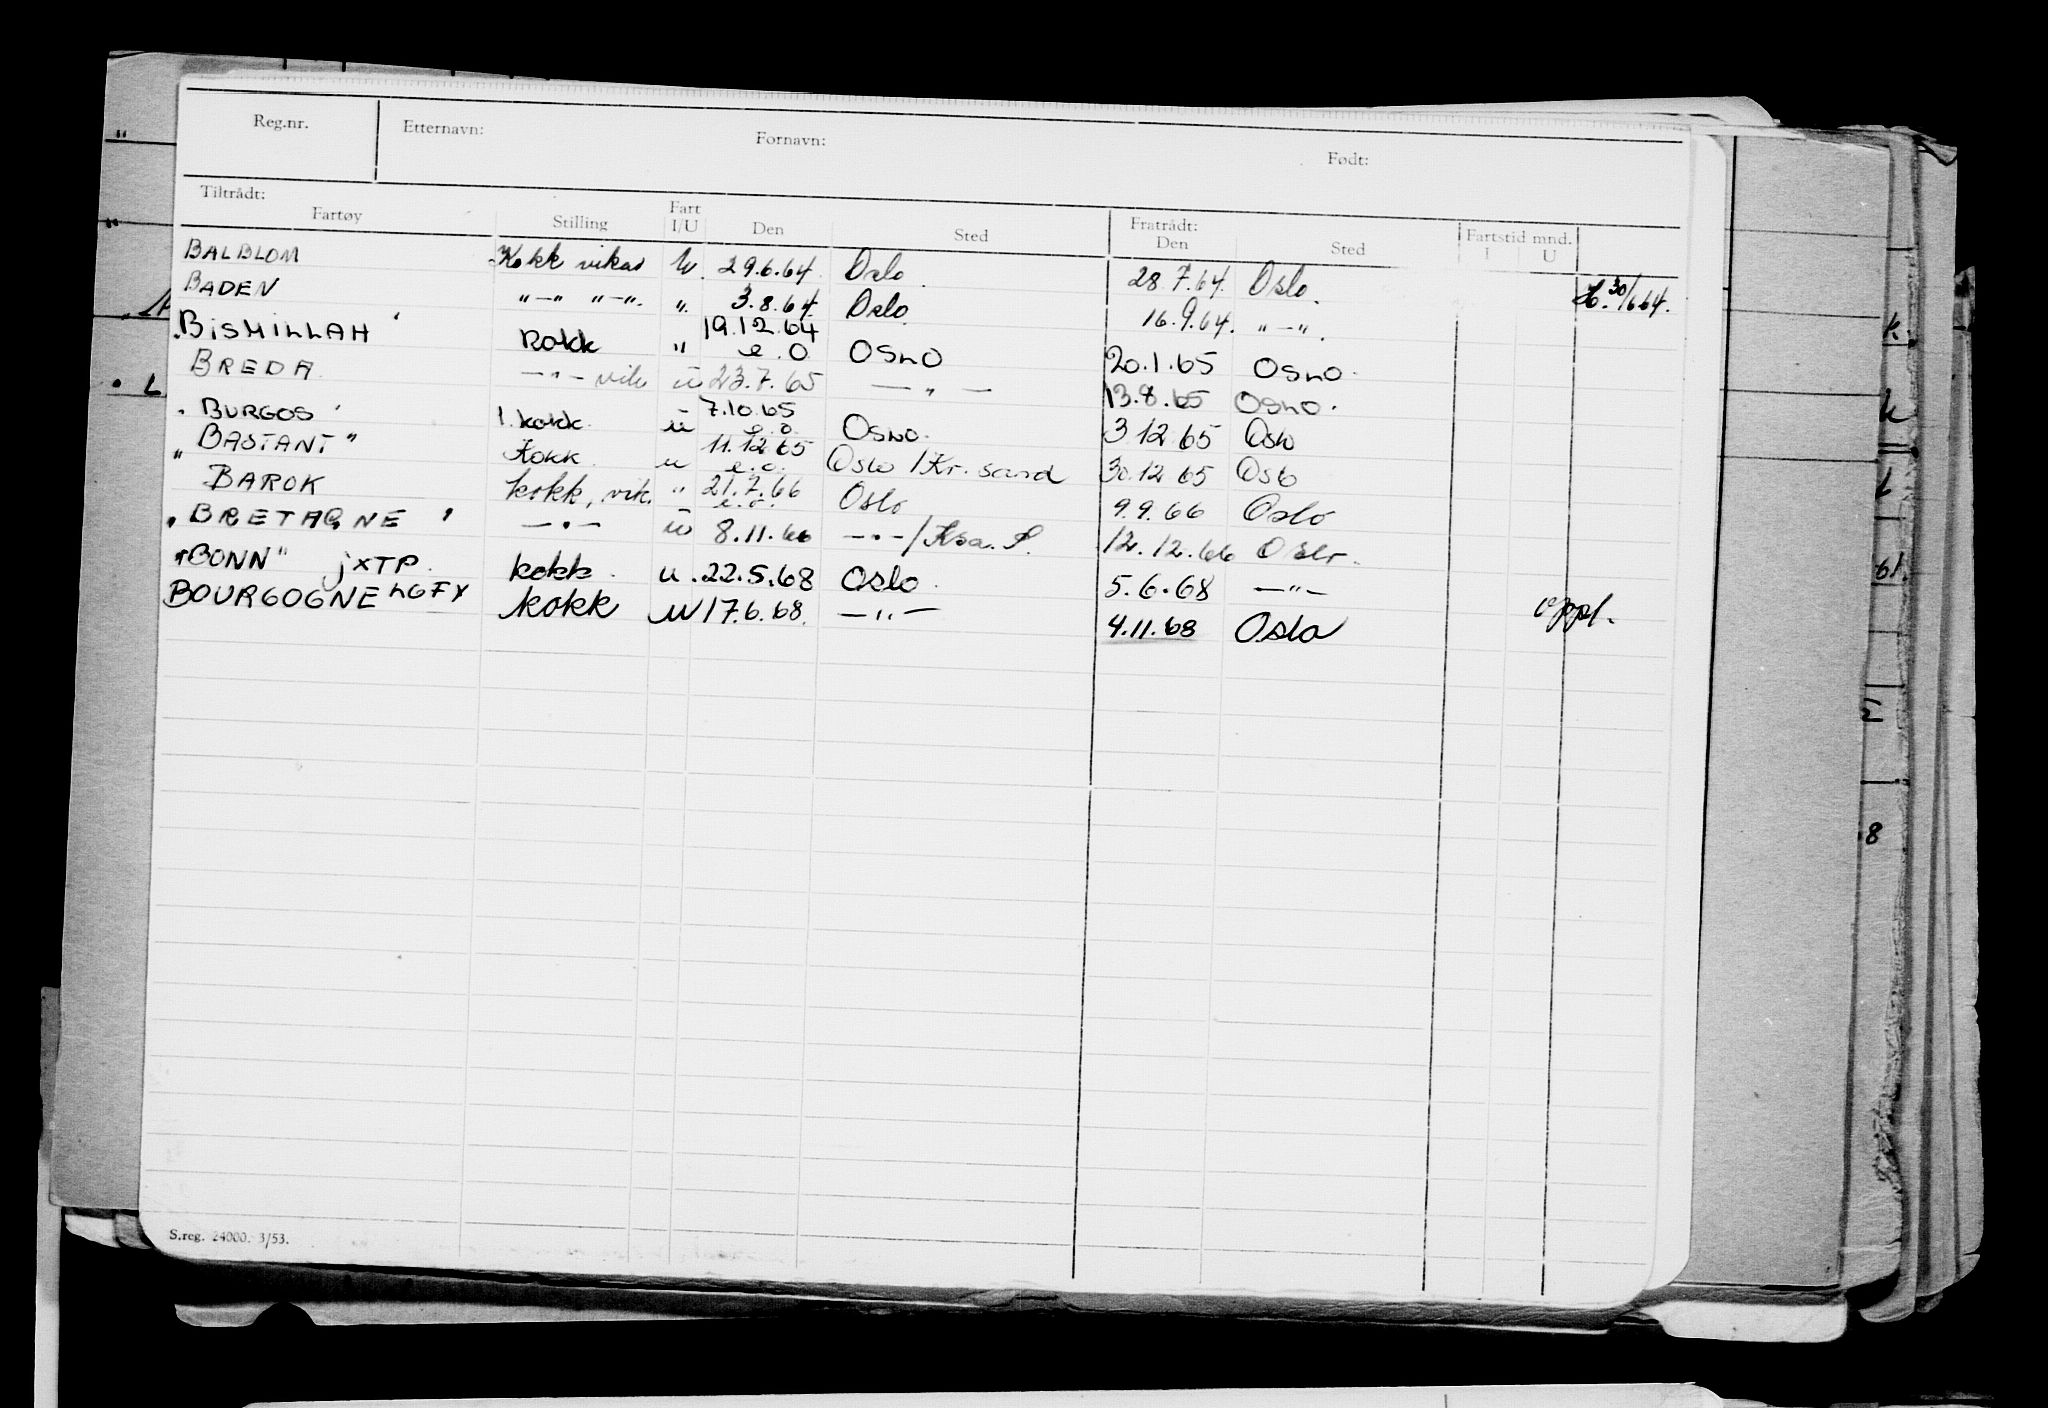 Reg.nr. Etternavn: Fornavn: Født:
Tiltrådt: Fratrådt:
Fartøy Stilling Fart I/U Den Sted Den Sted Fartstid mnd. I U
BALBLOM Kokk vikar U. 29.6.64 Oslo. 28.7.64. Oslo. 30/6.64.
BADEN "—" "—". ". 3.8.64. Oslo. 16.9.64. "—".
"BISMILLAH" Kokk " 19.12.64 e.o OSLO 20.1.65 OSLO.
BREDA —"— vik u 23.7.65 —"— 13.8.65 OSLO.
"BURGOS" 1. kokk. u 7.10.65 e.o. OSLO. 3 12 65 Oslo
"BASTANT" Kokk. u 11.12.65 e.o. Oslo /Kr.sand 30.12 65 Oslo
BAROK kokk, vik. " 21.7.66 e.o. Oslo 9.9.66 Oslo
"BRETAGNE" —"— u 8.11.66 —"—/Ksa. S. 12.12.66 Oslo.
"BONN" jXTP. kokk. u. 22.5.68 Oslo. 5.6.68 —"—
BOURGOGNE LGFY kokk u 17.6.68. —"— 4.11.68 Oslo oppl.
S.reg. 24000. 3/53.